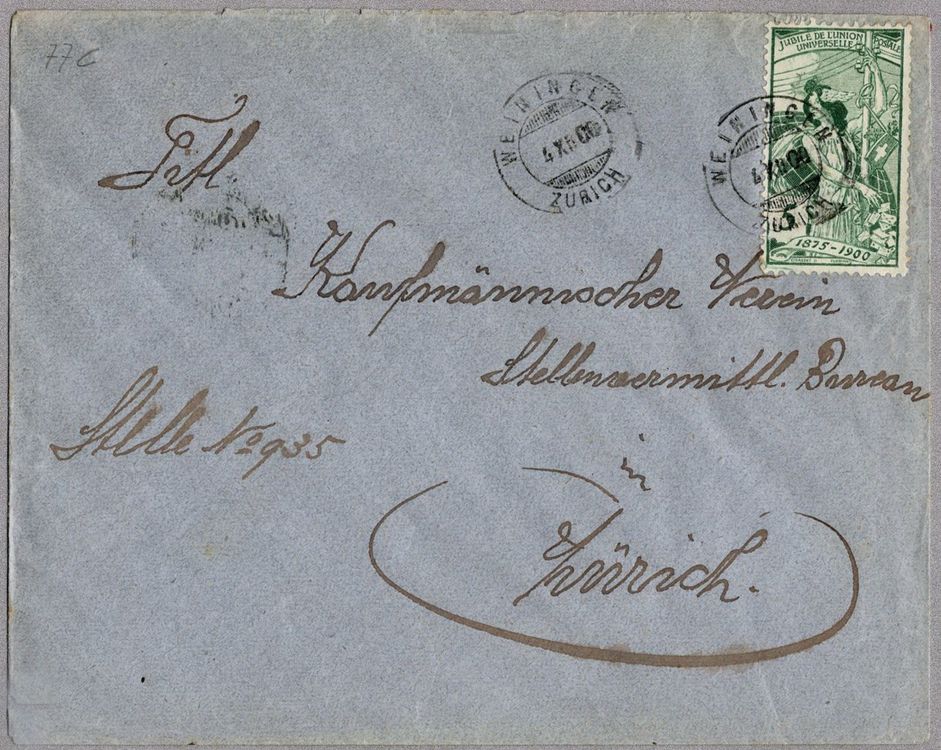 77c
JUBILÉ DE L'UNION
POSTALE
UNIVERSELLE
5
1875-1900
WEININGEN
4 XII 00
ZURICH
WEININGEN
4 XII 00
ZURICH
Titl
Kaufmännischer Verein
Stellenvermittl. Bureau
Stelle No 935
in
Zürich.